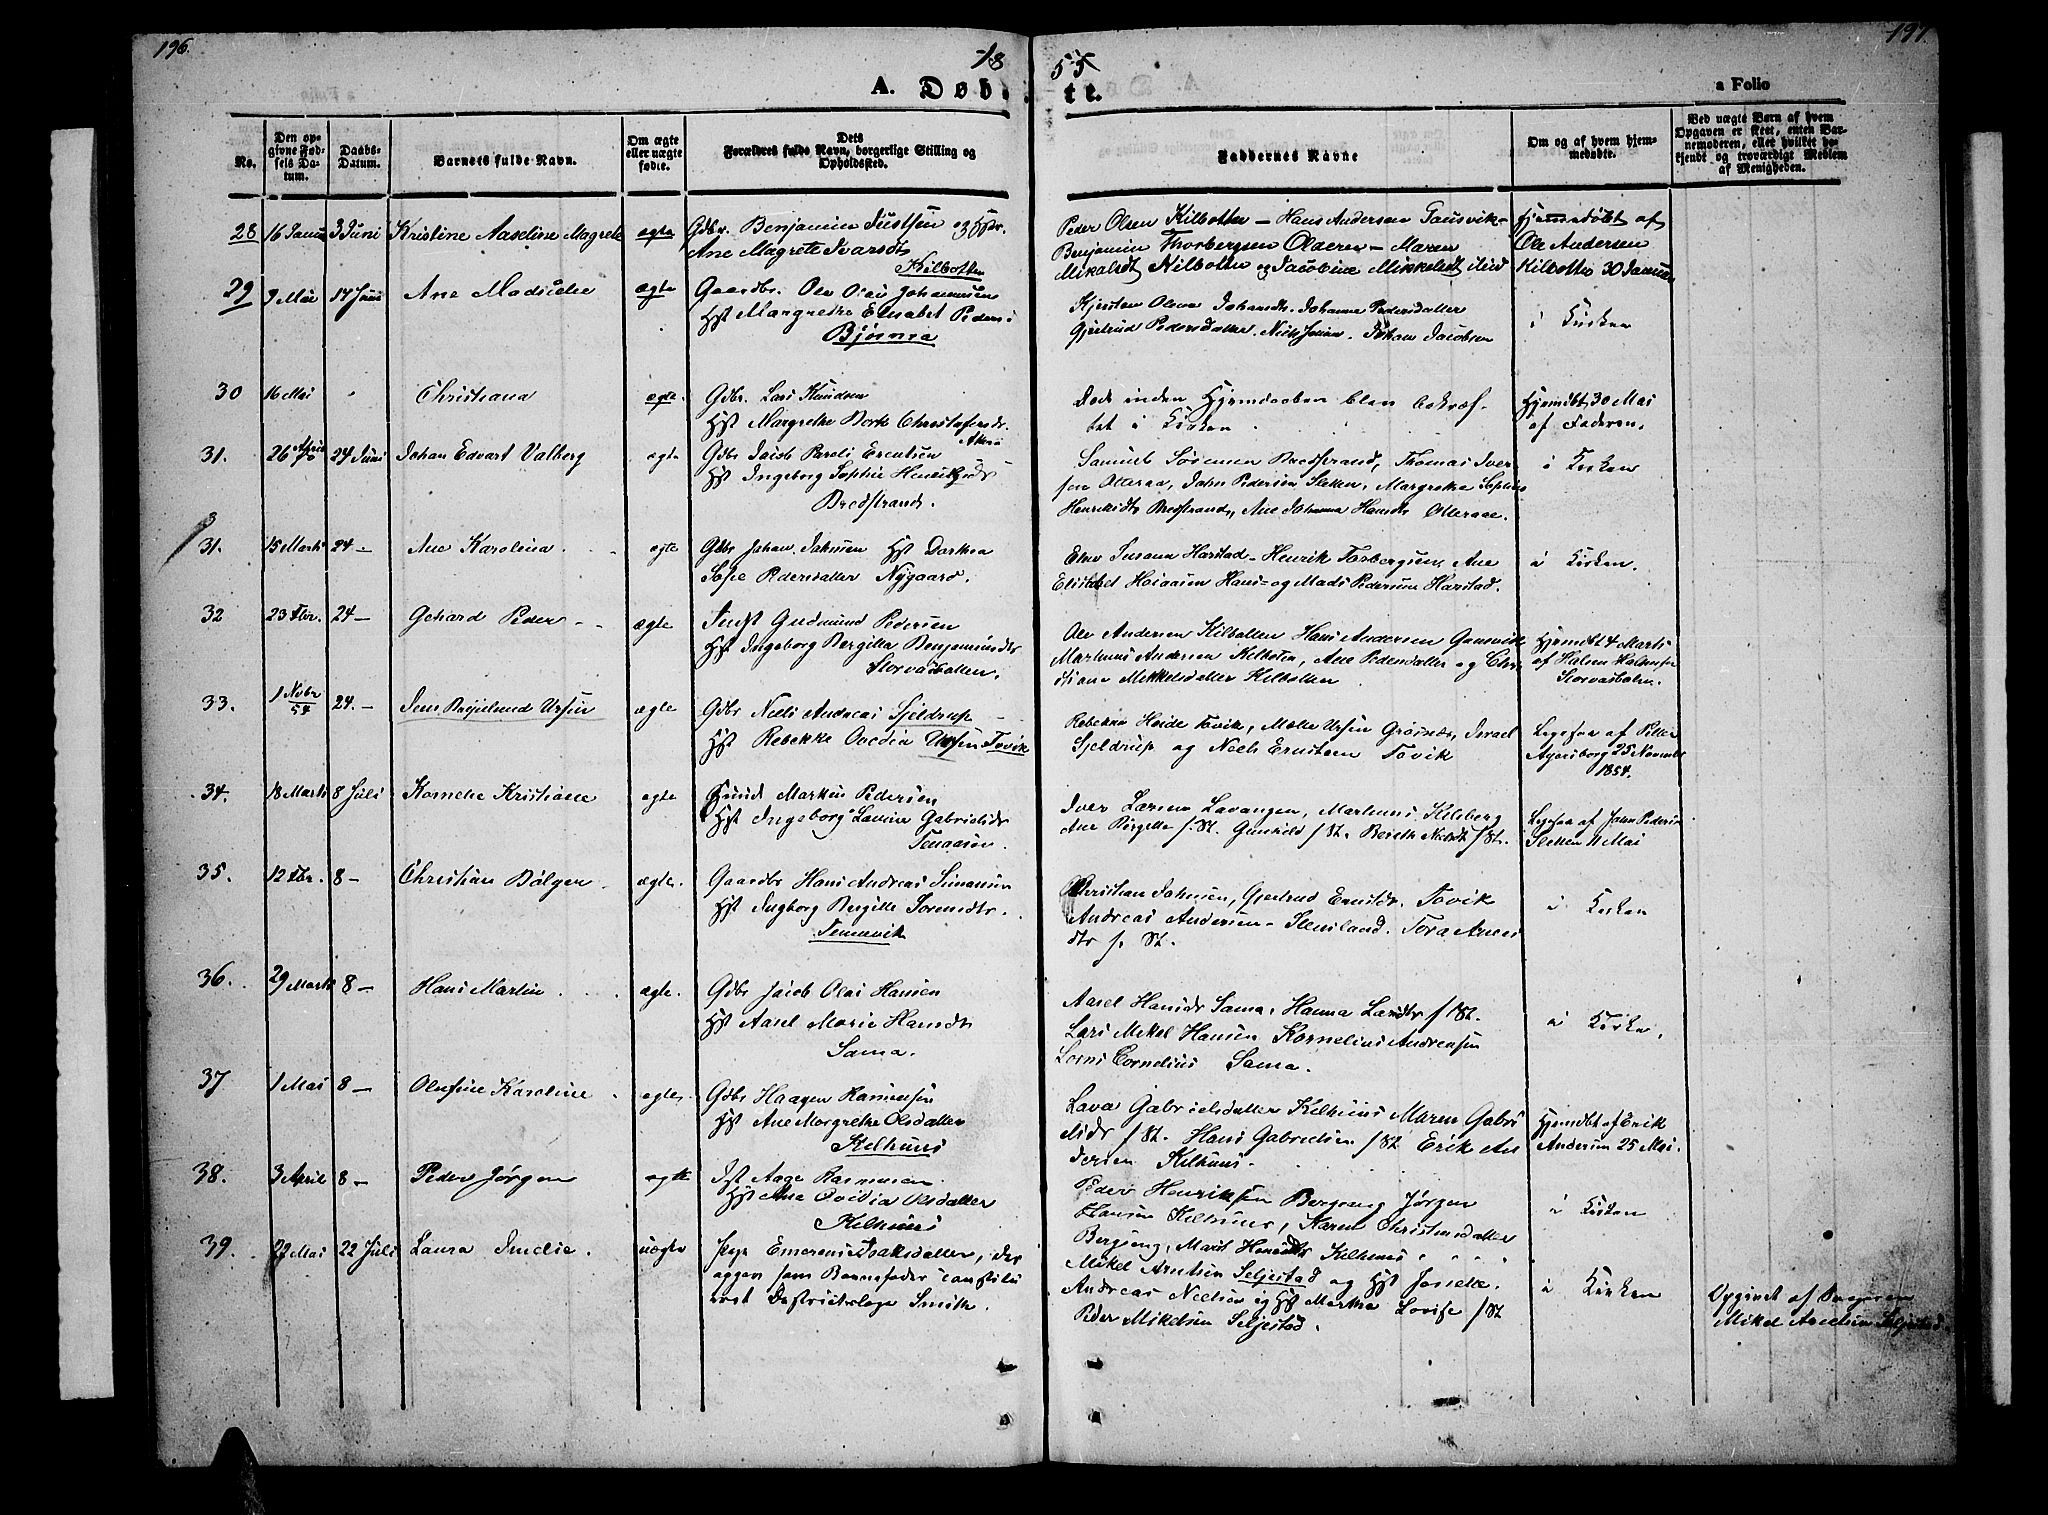 196.
18
55
197.
A. Døb-
te.
a Folio
No.
Den opgivne Fødsels Datum.
Daabs-Datum.
Barnets fulde Navn.
Om ægte eller uægte fødte.
Dets Forældres fulde Navn, borgerlige Stilling og Opholdssted.
Faddernes Navne
Om og af hvem hjemmedøbte.
Ved uægte Børn af hvem Opgaven er skeet, enten Barnemoderen, eller hvilket bekjendt og troværdigt Medlem af Menigheden.
28 16 Janu 3 Juni Kristine Aaseline Magrete ægte Gdbr. Benjamin Justsen og Hstr.
Ane Magrete Ivarsdt
Kilbotten
Peder Olsen Kilbotten – Hans Andersen Gausvik –
Benjamin Thorbergsen Olderen – Maren
Mikalsdt Kilbotten og Jacobine Mikkelsdt
Hjemmedøbt af
Ole Andersen
Kilbotten 30 Januar
29 9 Mai 17 Juni Ane ægte Gaardbr. Ole Olai Johannesen
Hst Margrethe Elisabet Peders
Kjersten Olava Johansdtr. Johanna Pedersdatter
Gjertrud Pedersdatter. Johan Jacobsen
i Kirken
30 16 Mai " Christiana ægte. Gdbr. Lars Knudsen
Hst Margrethe Bork Christofersdr.
Døde inden Hjemdaaben blev bekræf-
tet i Kirken.
Hjemdbt 30 Mai
af Faderen.
31. 26 April 24 Juni Johan Edvart Valberg ægte Gdbr Jacob Paroli Erentsen
Hst Ingeborg Sophie Henriksdt
Bredstrand.
Samuel Sørensen Bredstrand, Thomas Iver-
sen Otteraa, John Pedersen Slekken, Margrethe Sophie
Henriksdtr Bredstrand, Ane Johanna Hansdt Otteraae.
i Kirken
31. 15 Marts 24 – Ane Karolina. ægte Gdbr Johan Johnsen Hst Dorthea
Sofie Pedersdatter Nygaard.
Elen Susana Harstad – Henrik Torbergsen, Ane
Elisabet Hans – og Mads Pedersen Harstad.
i Kirken.
32 23 Fbr. 24 – Gehard Peder ægte Indst Gudmund Pedersen
Hst Ingeborg Bergitta Benjamindtr
Storvasbotten.
Ole Andersen Kilbotten Hans Andersen Gausvik
Markus Andersen Kilboten, Ane Pedersdatter og Chr-
stiana Mikkelsdatter Kilbotten
Hjemdt 4 Marts
af Halvor Halvorsen
Storvasboten.
33. 1 Nvbr/54 24. – Jens Ursin ægte Gdbr Niels Andreas Sjeldrup
Hst Rebekke Ovedia Ursin Tovik
Rebekka Heide Tovik, Mette Ursin Grøsnæs, Israel
Sjeldrup og Niels Ernstsen Tovik
Ligesaa af Petter
25 November
1854.
34. 18 Marts 8 Juli Kornelie Kristiane ægte Markus Pedersen
Hst Ingeborg Lavine Gabrielsdr
Iver Larsen Lavangen, Markus Kileberg
Ane Birgitte f. St. Gunhild f St. Bereth Nielsdt f St.
Ligesaa af John Pedersen
Slekken 11 Mai
35. 12 Fbr. 8 – Christian Bølger ægte. Gaardbr Hans Andreas Simonsen
Hst Ingborg Bergitte Sørensdtr.
Tennevik
Christian Johnsen, Gjertrud Ernstdr. Tovik
Andreas Andersen – Stensland. Tora
dtr f. St.
i Kirken
36. 29 Marts 8 – Hans Martin ægte. Gdbr Jacob Olai Hansen
Hst Axel Marie Hansdt
Sama.
Axel Hansdr Sama, Hanna Larsdtr f St.
Lars Mikel Hansen Kornelius Andreasen
Cornelius Sama.
i Kirken.
37 1 Mai 8 – Olufine Karoline ægte Gdbr Haagen Rasmussen
Hst Ane Margrethe Olsdatter
Kelhuus
Lava Gabrielsdatter Kelhuus Maren Gabri
elsdr f St. Hans Gabrielsen f St Erik An
dersen Kelhuus.
Hjemdbt af Erik
Andersen 25 Mai.
38. 3 April 8 – Peder Jørgen ægte Ist Aage Rasmussen
Hst Ane Ovidia Olsdatter
Kelhuus
Peder Henriksen Bergseng Jørgen
Hansen Kelhuus, Karen Christensdatter
Bergseng, Marit Kelhuus
i Kirken
39. 22 Mai 22 Juli Laura Emelie. uægte Pige Emerense Isaksdatter, der
opgav som Barnefader constitu
eret Destrictslæge Smith.
Mikel Arntsen Seljestad og Hst Josette.
Andreas Nielsen og Hst Martha Lovise f St
Peder Mikelsen Seljestad.
i Kirken
Opgivet af
Mikel Arntsen Seljestad.